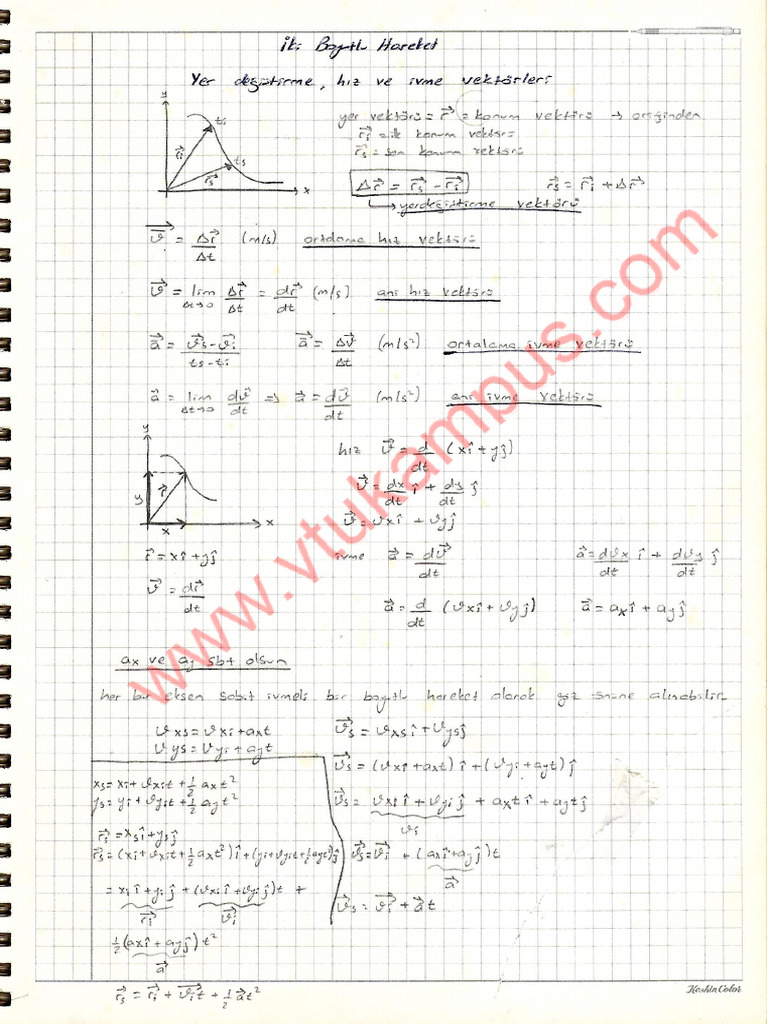 İki Boyutlu Hareket
Yer değiştirme, hız ve ivme vektörleri
y
ti
ts
r⃗i
r⃗s
x
yer vektörü = r⃗ = konum vektörü → orijinden
r⃗i = ilk konum vektörü
r⃗s = son konum vektörü
Δr⃗ = r⃗s - r⃗i
r⃗s = r⃗i + Δr⃗
yerdeğiştirme vektörü
v⃗ = Δr⃗/Δt (m/s) ortalama hız vektörü
v⃗ = lim Δt→0 Δr⃗/Δt = dr⃗/dt (m/s) ani hız vektörü
a⃗ = (v⃗s - v⃗i)/(ts - ti) a⃗ = Δv⃗/Δt (m/s²) ortalama ivme vektörü
a⃗ = lim Δt→0 dv⃗/dt ⇒ a⃗ = dv⃗/dt (m/s²) ani ivme vektörü
y
r⃗
y
x
x
hız v⃗ = d/dt (xî + yĵ)
v⃗ = dx/dt î + dy/dt ĵ
v⃗ = vxî + vyĵ
r⃗ = xî + yĵ
v⃗ = dr⃗/dt
ivme a⃗ = dv⃗/dt
a⃗ = dvx/dt î + dvy/dt ĵ
a⃗ = d/dt (vxî + vyĵ)
a⃗ = axî + ayĵ
ax ve ay sbt olsun
her bir eksen sabit ivmeli bir boyutlu hareket olarak göz önüne alınabilir
vxs = vxi + axt
vys = vyi + ayt
v⃗s = vxsî + vysĵ
v⃗s = (vxi + axt)î + (vyi + ayt)ĵ
v⃗s = vxiî + vyiĵ + axtî + aytĵ
vi
v⃗s = v⃗i + (axî + ayĵ)t
a⃗
v⃗s = v⃗i + a⃗t
xs = xi + vxit + 1/2 axt²
ys = yi + vyit + 1/2 ayt²
r⃗s = xsî + ysĵ
r⃗s = (xi + vxit + 1/2 axt²)î + (yi + vyit + 1/2 ayt²)ĵ
= xiî + yiĵ + (vxiî + vyiĵ)t +
r⃗i v⃗i
1/2 (axî + ayĵ)t²
a⃗
r⃗s = r⃗i + v⃗it + 1/2 a⃗t²
www.vtukampus.com
KeskinColor